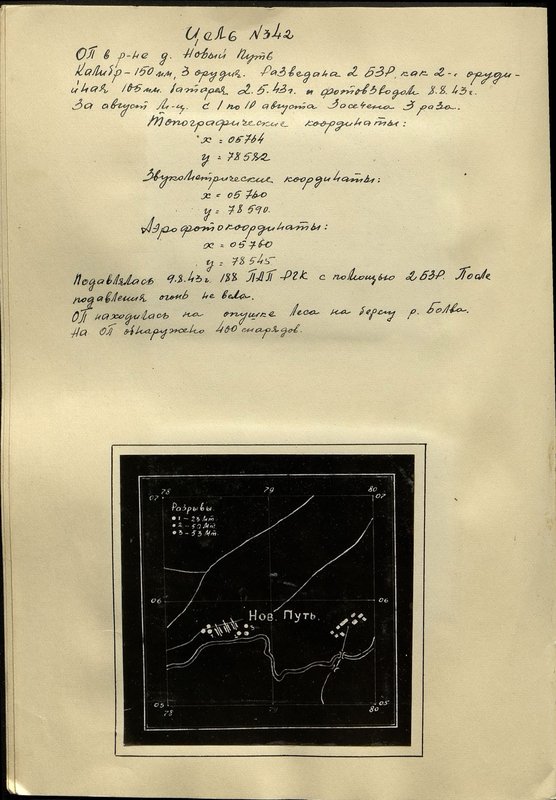 Цель №342
ОП в р-не д. Новый Путь
Калибр-150 мм, 3 орудия. Разведана 2 БЗР, как 2-х оруди-
йная 105 мм. батарея 2.5.43г. и фотовзводом 8.8.43г.
За август м-ц. с 1 по 10 августа Засечена 3 раза.
Топографические координаты:
x = 05764
y = 78582
Звукометрические координаты:
x = 05760
y = 78590.
Аэрофотокоординаты:
x = 05760
y = 78545
Подавлялась 9.8.43г. 188 ПАП РГК с помощью 2 БЗР. После
подавления огонь не вела.
ОП находилась на опушке леса на берегу р. Болва.
На ОП обнаружено 400 снарядов.
78 79 80
07 07
Разрывы.
1 - 23 Мт.
2 - 57 Мт.
3 - 53 Мт.
06 06
Нов. Путь.
05 05
78 79 80